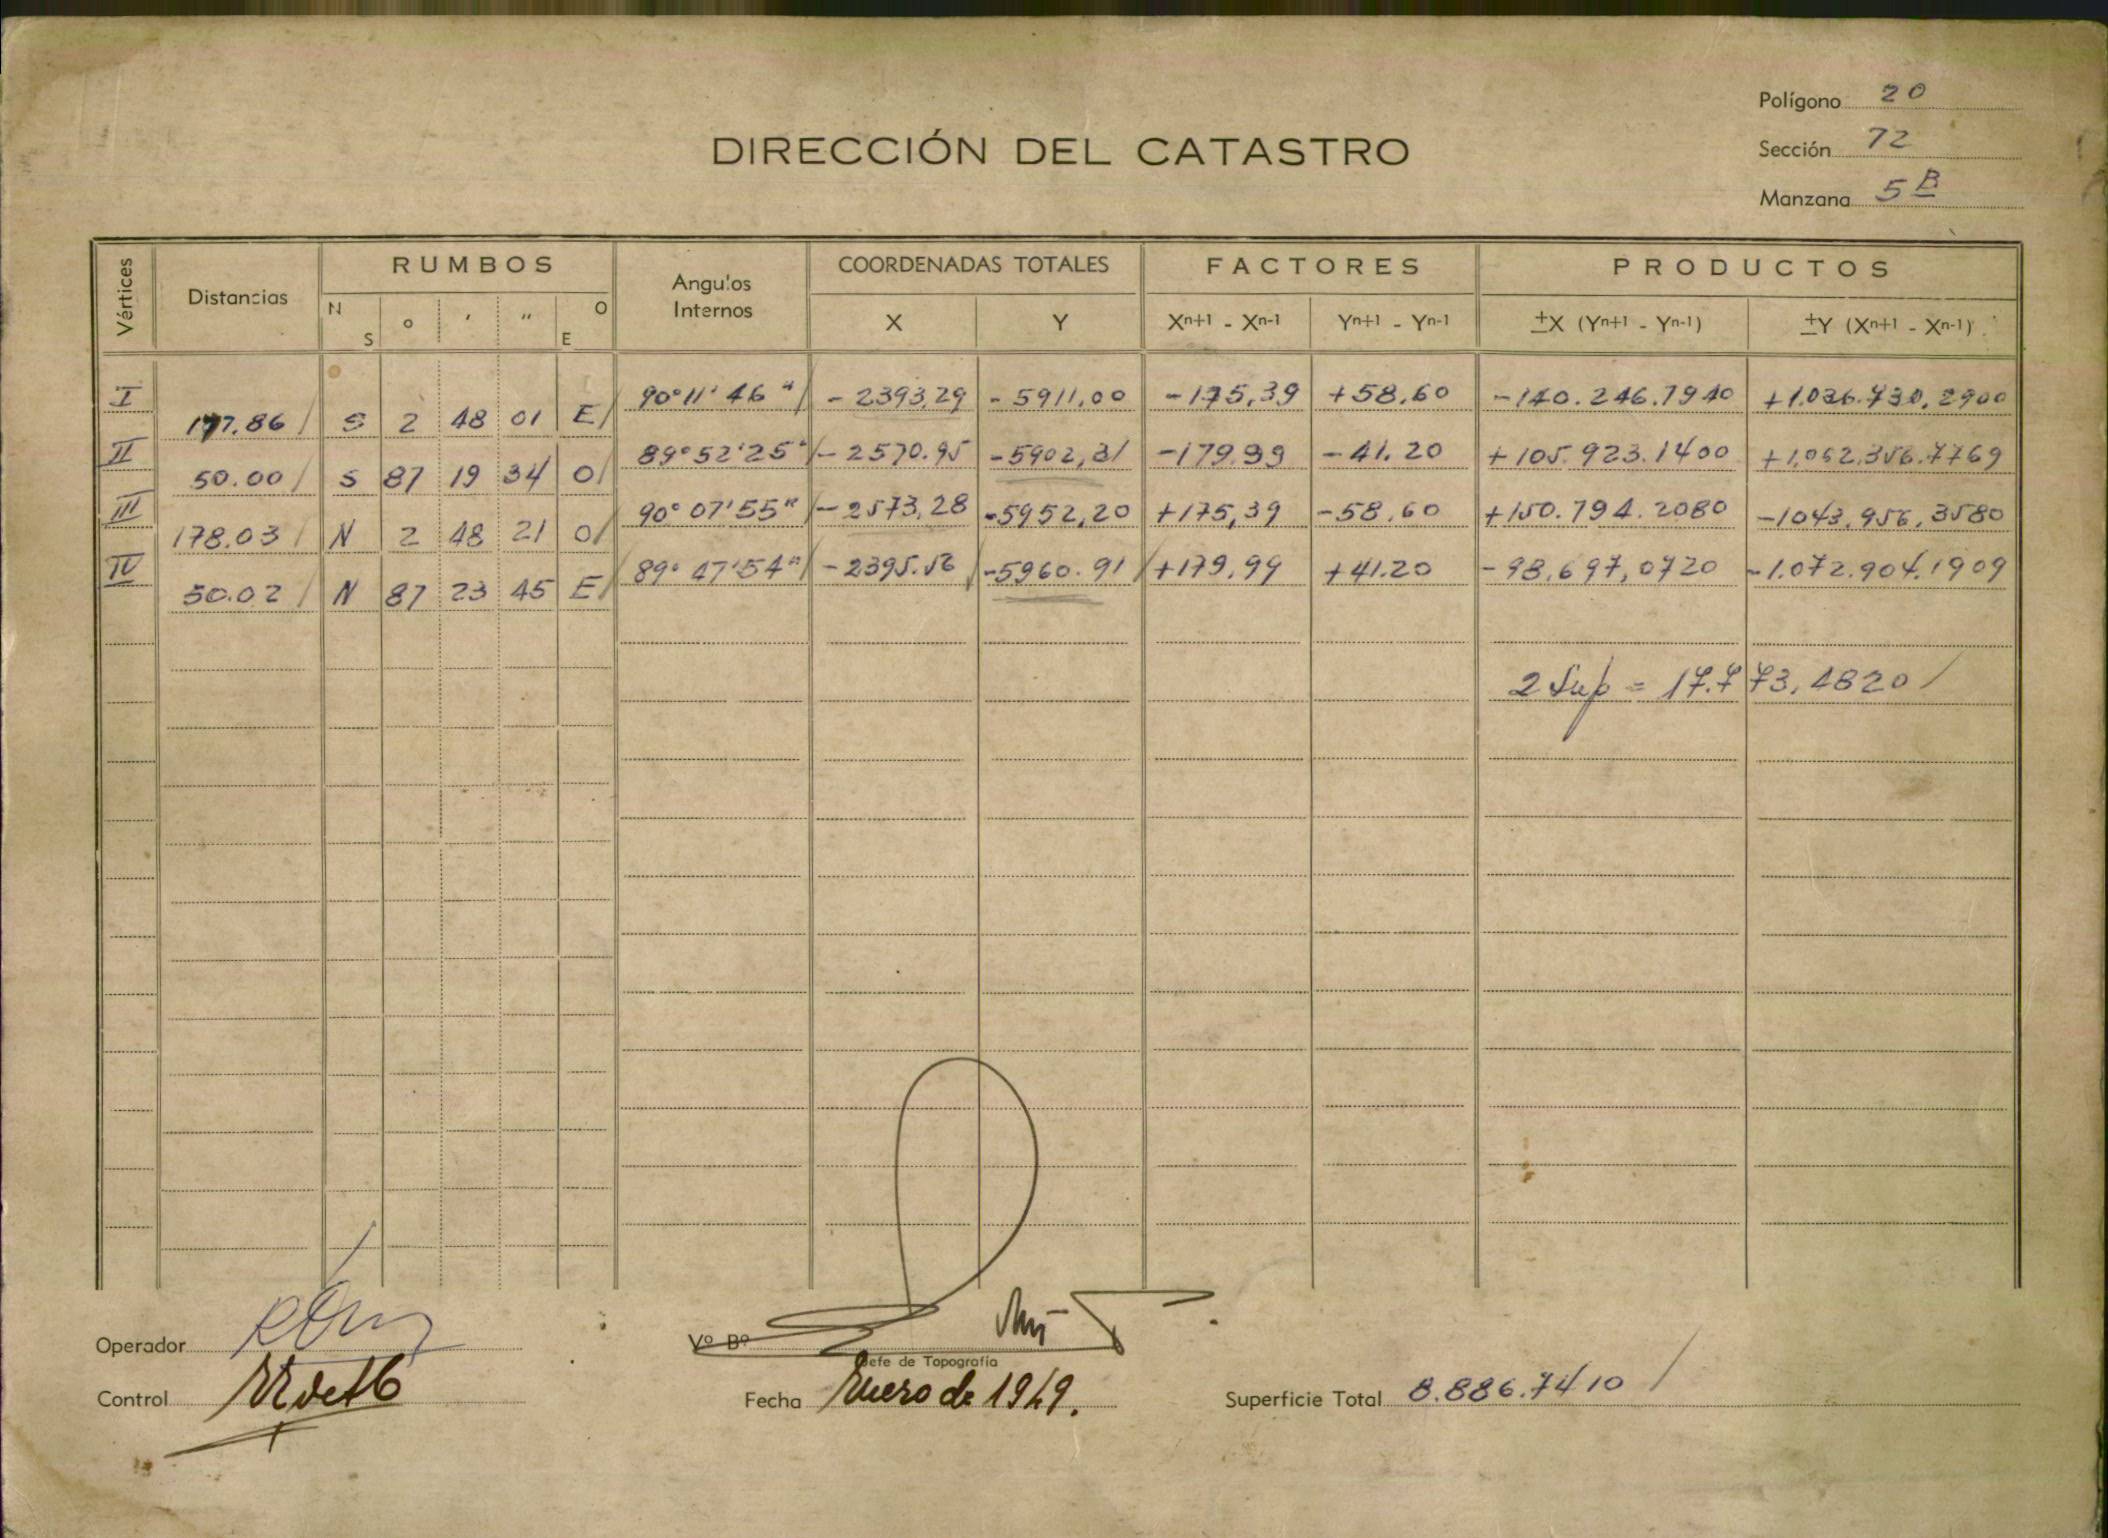 Polígono 20
DIRECCIÓN DEL CATASTRO
Sección 72
Manzana 5 B
Vértices Distancias RUMBOS Angulos Internos COORDENADAS TOTALES FACTORES PRODUCTOS
N S ° ' " O E X Y Xn+1 - Xn-1 Yn+1 - Yn-1 ±X (Yn+1 - Yn-1) ±Y (Xn+1 - Xn-1)
I 90°11'46" -2393,29 -5911,00 -175,39 +58,60 -140.246.7940 +1.036.730,2900
177.86 S 2 48 01 E
II 89°52'25" -2570.95 -5902,31 -179.99 -41.20 +105.923.1400 +1.062.356.7769
50.00 S 87 19 34 O
III 90°07'55" -2573,28 -5952,20 +175,39 -58.60 +150.794.2080 -1043.956,3580
178.03 N 2 48 21 O
IV 89°47'54" -2395.56 -5960.91 +179,99 +41.20 -98.697,0720 -1.072.904.1909
50.02 N 87 23 45 E
2 Sup = 17.773,4820
Operador
Vº Bº
Jefe de Topografía
Control
Fecha Enero de 1949.
Superficie Total 8.886.7410